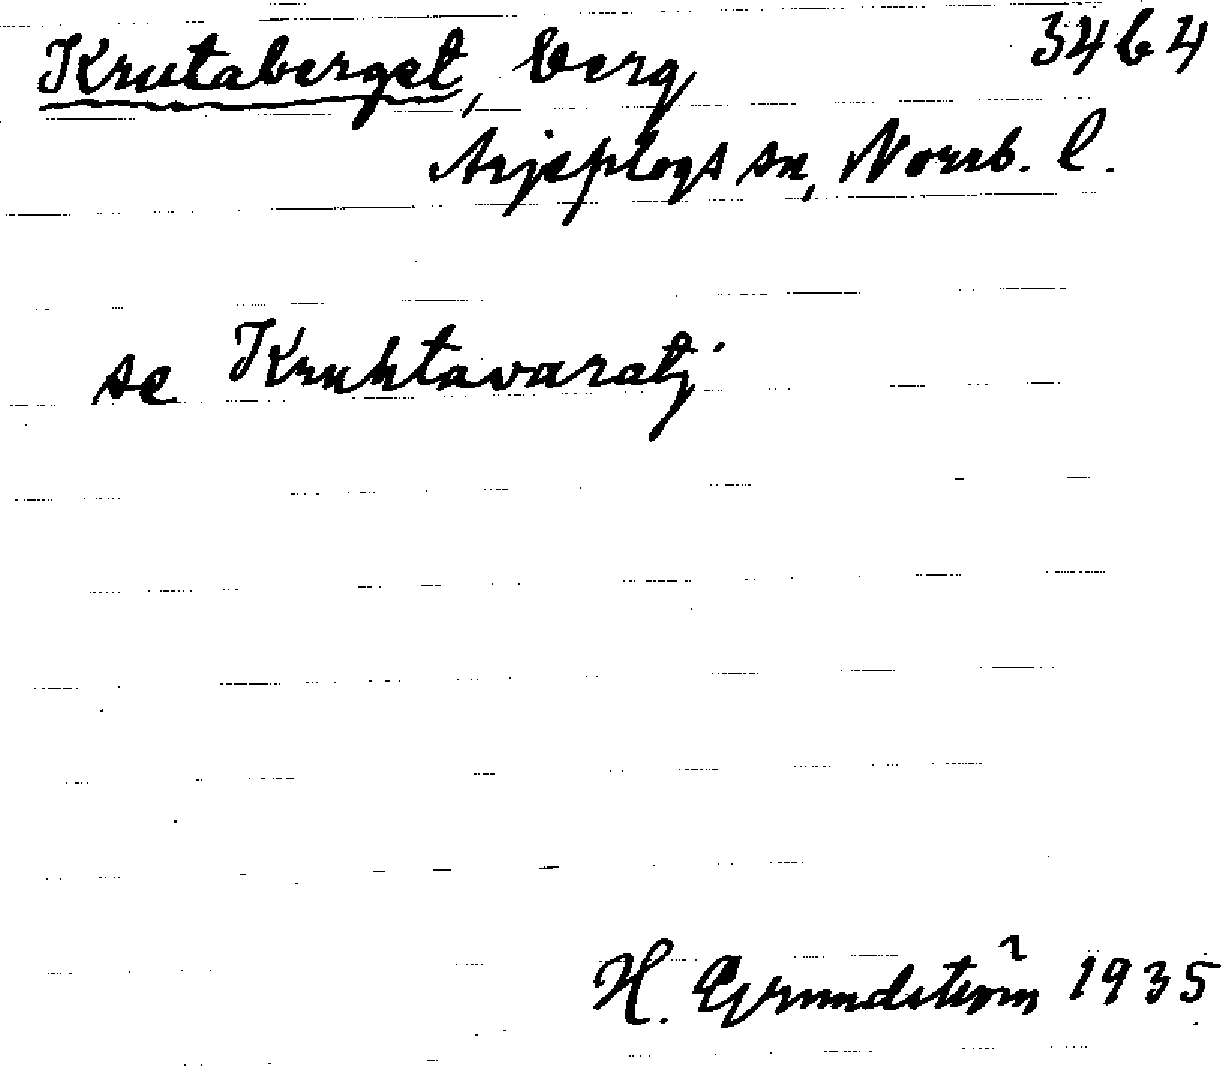 Krutaberget, berg 3464
Arjeplogs sn, Norrb. l.
se Kruhtavaratj
H. Grundström 1935